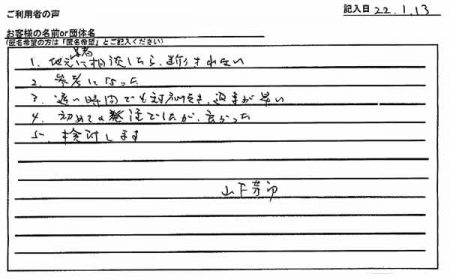 ご利用者の声
記入日 22.1.13
お客様の名前or団体名
(匿名希望の方は「匿名希望」とご記入ください)
業者
1. 地元に相談したら、断られた
2. 参考になった
3. 遅い時間でも対応頂き、返事が早い
4. 初めての発注でしたが、良かった
5. 検討します
山下